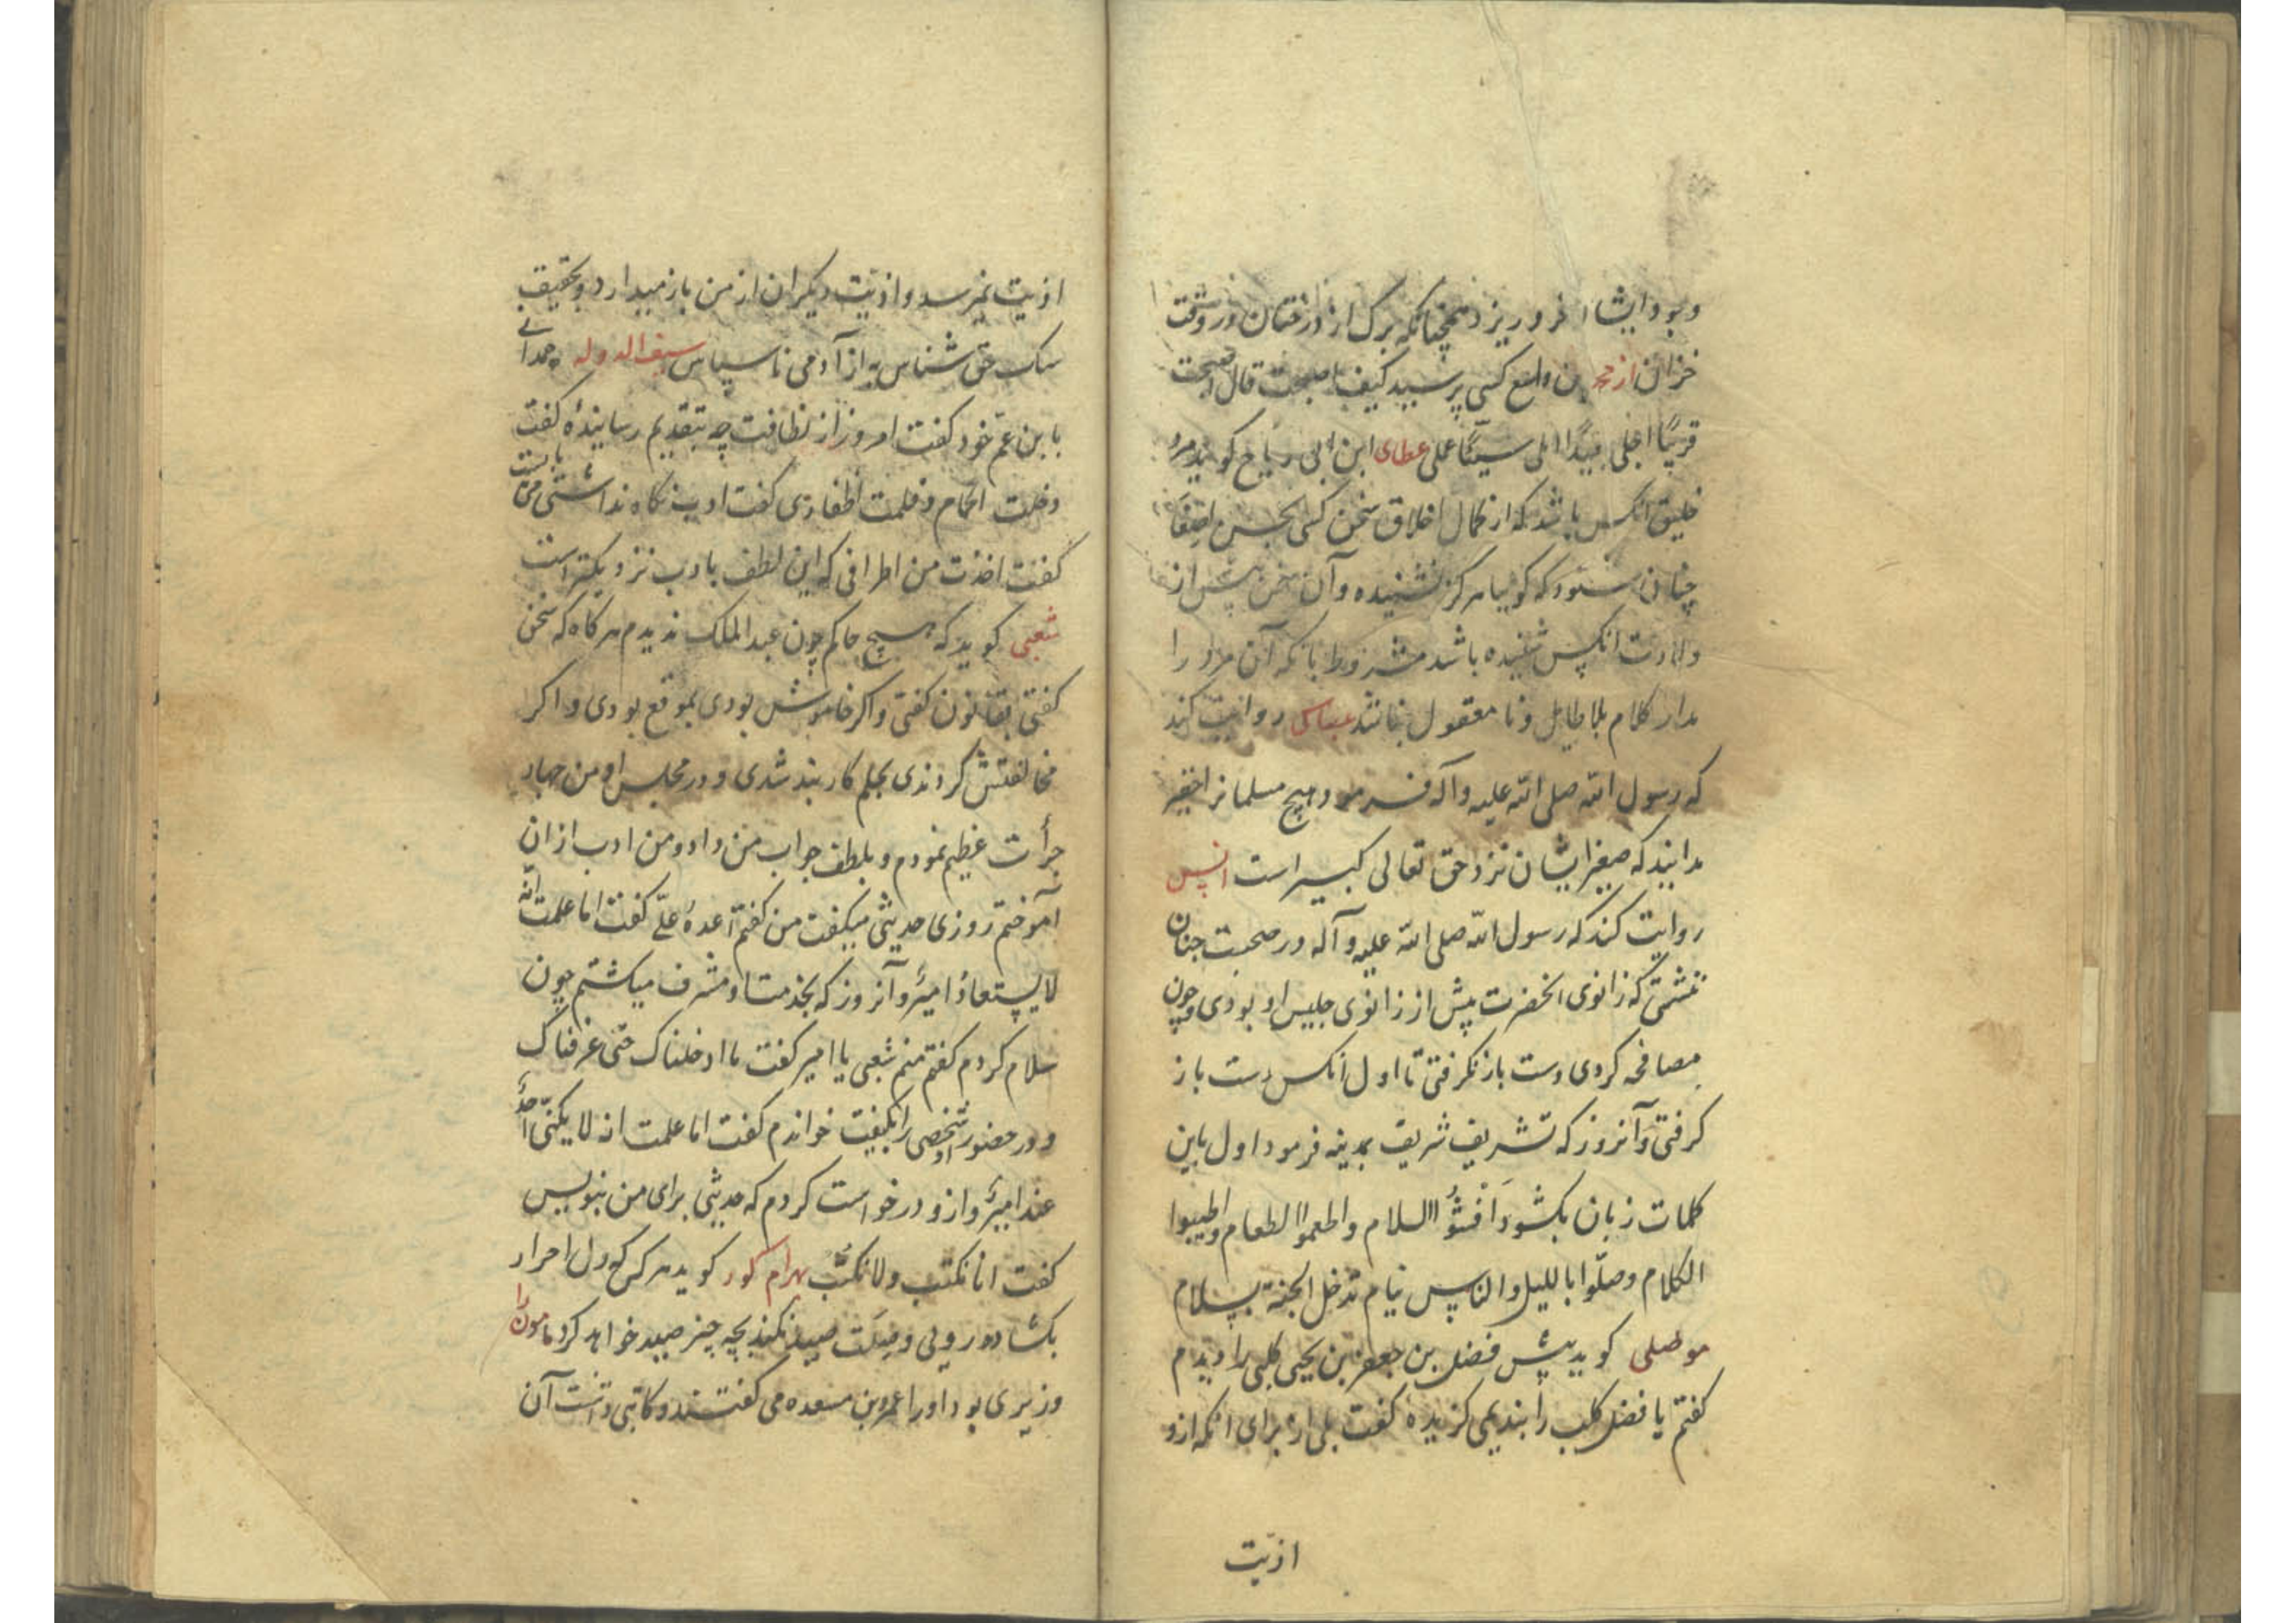 و بود ایشا فرو ریزد همچنانکه برک از درختان در وقت
خزان از محمد بن واسع کسی پرسید کیف اصبحت قال اصبحت
قریبًا اجلی بعیدًا املی سیئًا عملی عطای ابن ابی ریاح کوید مرد
خلیق انکس باشد که از کمال اخلاق سخن کسی بحسن اصغا
چنان شنود که کویا هرکز نشنیده و آن سخن پیش از
ولادت انکس شنیده باشد مشروط بانکه آن مرد را
مدار کلام بلاطایل و نا معقول نباشد عباس روایت کند
که رسول الله صلی الله علیه وآله فرمود هیچ مسلمانرا حقیر
مدانید که صغیر ایشان نزد حق تعالی کبیر است انس
روایت کند که رسول الله صلی الله علیه وآله در صحبت چنان
ننشستی که زانوی انحضرت پیش از زانوی جلیس او بودی و چون
مصافحه کردی دست باز نکرفتی تا اول انکس دست باز
کرفتی و آنروز که تشریف شریف بمدینه فرمود اول باین
کلمات زبان بکشود اَفْشُوُا السلام واطعموا الطعام واطیبوا
الکلام وصلّوا باللیل والناس نیام تدخل الجنة بسلام
موصلی کوید پیش فضل بن جعفر بن یحیی کلبی را دیدم
کفتم یا فضل کلب را بندیمی کزیدهٔ کفت بلی از برای انکه ازو
اذیت
اذیت نمیرسد و اذیت دیکران از من باز میدارد و بحقیقت
سک حق شناس به از آدمی نا سپاس سیف الدوله حمدانی
با بن عم خود کفت امروز از نظافت چه بتقدیم رسانیدهٔ کفت
دخلت الحمام وقلمت اظفاری کفت ادب نکاه نداشتی می بایست
کفت اخذت من اطرافی که این لطف بادب نزدیکتر است
شعبی کوید که هیچ حاکم چون عبد الملک ندیدم هر کاه که سخن
کفتی بقانون کفتی و اکر خاموش بودی بموقع بودی و اکر
مخالفتش کردندی بحلم کار بند شدی و در مجلس او من چهار
جرأت عظیم نمودم و بلطف جواب من داد و من ادب ازان
آموختم روزی حدیثی میکفت من کفتم اعدهُ علیّ کفت اما علمت انّه
لا یستعادُ امیرٌ و آنروز که بخدمت او مشرف میکشتم چون
سلام کردم کفتم منم شعبی یا امیر کفت ما ادخلناک حتی عرفناک
و در حضور او شخصی را بکنیت خواندم کفت اما علمت انه لا یکنّی احدٌ
عند امیرٍ و ازو درخواست کردم که حدیثی برای من بنویس
کفت انا نکتب ولا نکتّب بهرام کور کوید هر کس که دل احرار
بکشاده رویی و صِلَت صید نکند بچه چیز صید خواهد کرد مامون را
وزیری بود او را عمرو بن مسعده می کفتند و کاتبی داشت آن